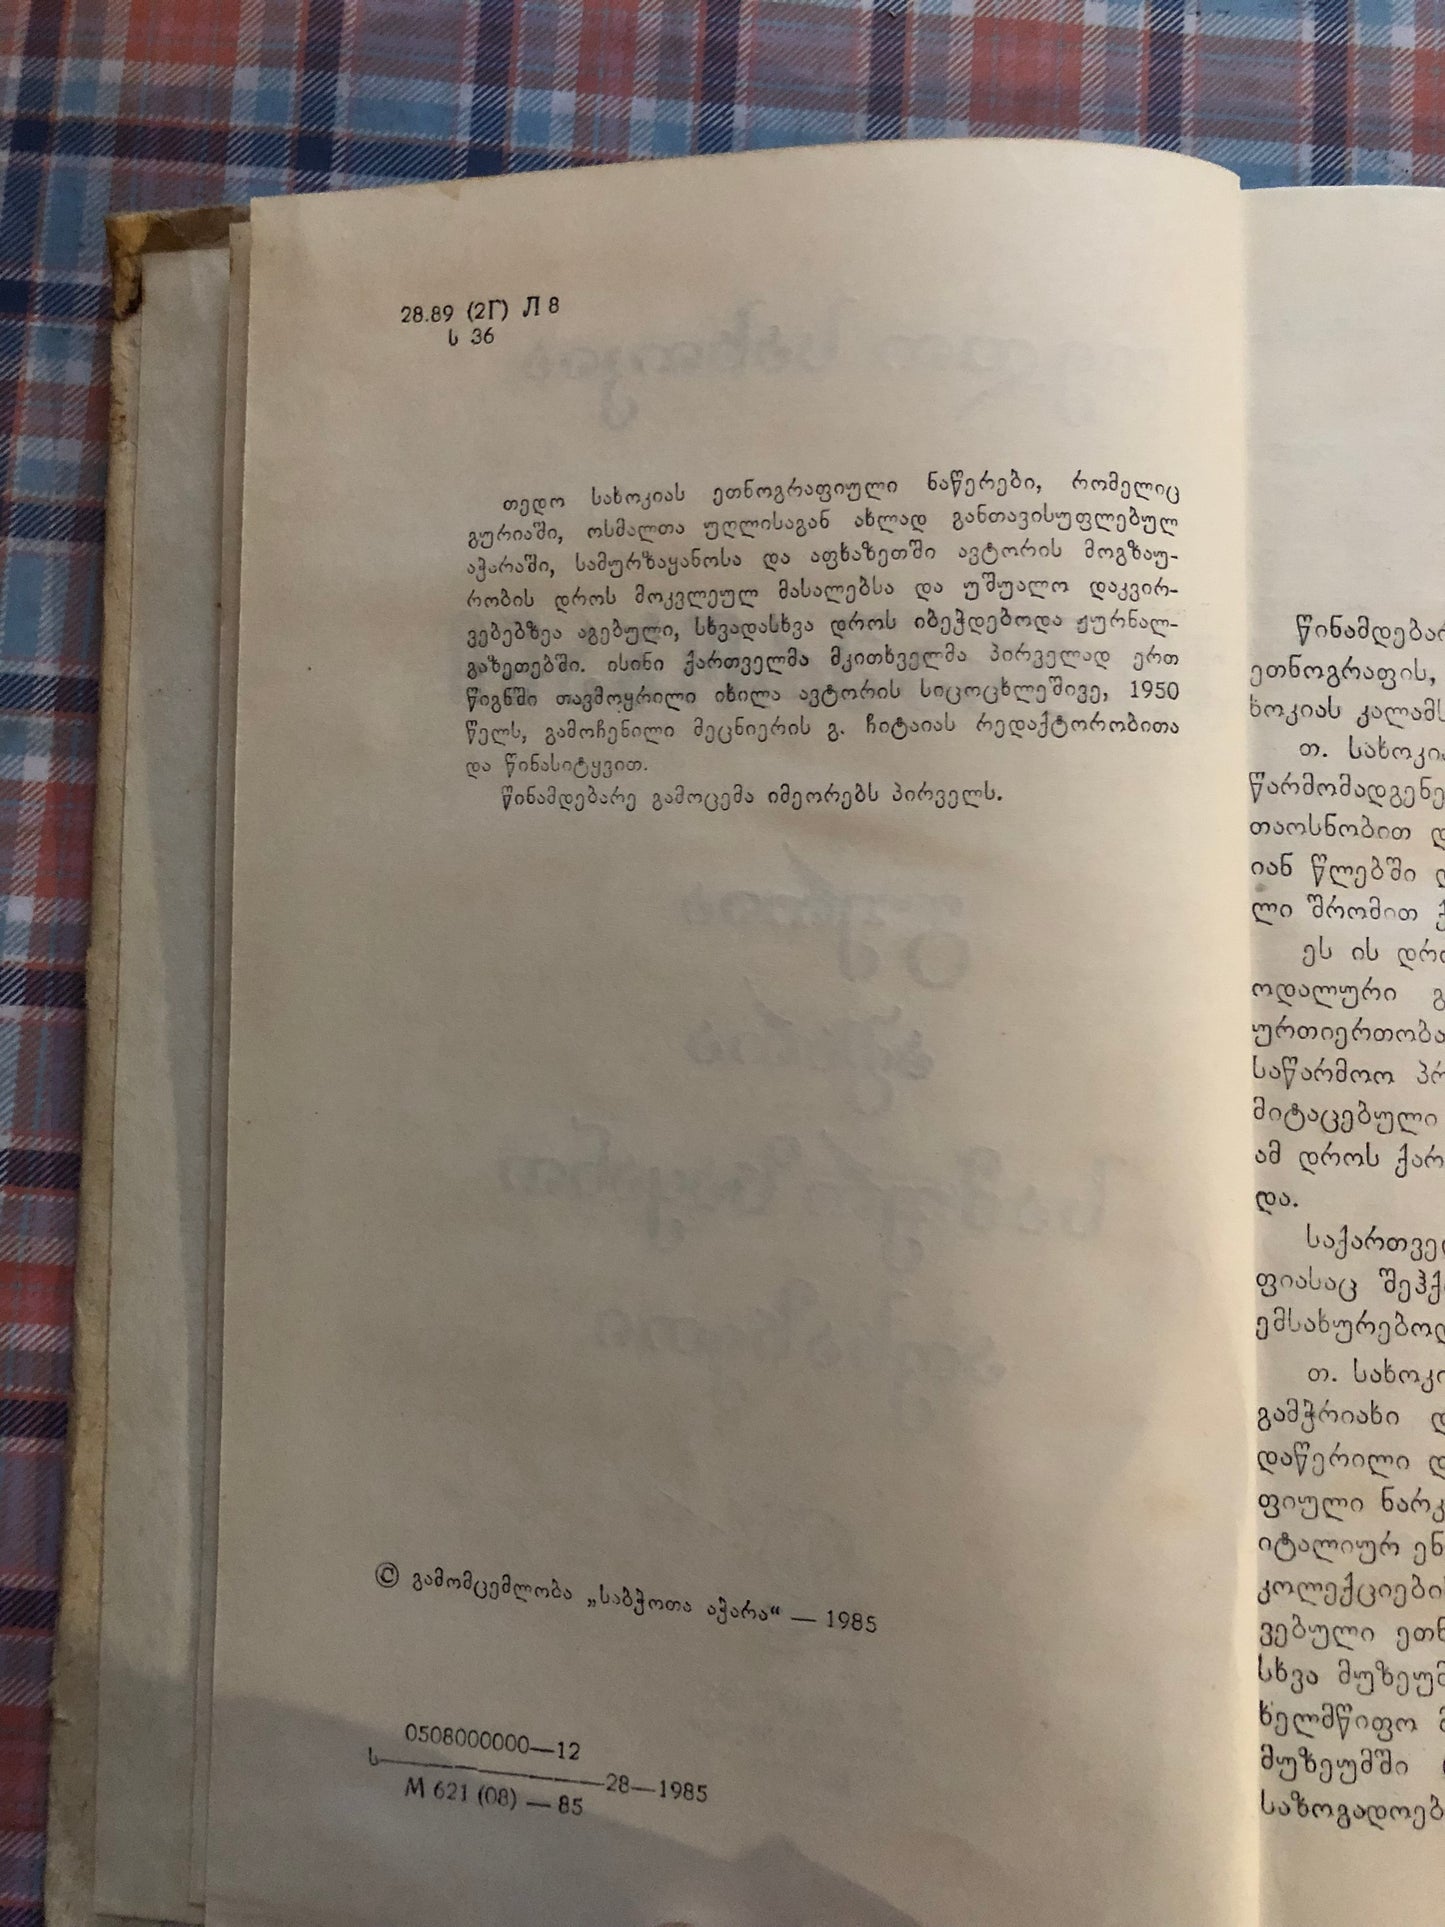 28.89 (2Г) Л 8
ს 36
თედო სახოკიას ეთნოგრაფიული ნაწერები, რომელიც
გურიაში, ოსმალთა უღლისაგან ახლად განთავისუფლებულ
აჭარაში, სამურზაყანოსა და აფხაზეთში ავტორის მოგზაუ-
რობის დროს მოკვლეულ მასალებსა და უშუალო დაკვირ-
ვებებზეა აგებული, სხვადასხვა დროს იბეჭდებოდა ჟურნალ-
გაზეთებში. ისინი ქართველმა მკითხველმა პირველად ერთ
წიგნში თავმოყრილი იხილა ავტორის სიცოცხლეშივე, 1950
წელს, გამოჩენილი მეცნიერის გ. ჩიტაიას რედაქტორობითა
და წინასიტყვით.
წინამდებარე გამოცემა იმეორებს პირველს.
© გამომცემლობა „საბჭოთა აჭარა“ — 1985
0508000000—12
ს 28—1985
М 621 (08) — 85
წინამდებარ
ეთნოგრაფის,
ხოკიას კალამს
თ. სახოკია
წარმომადგენე
თაოსნობით დ
იან წლებში დ
ლი შრომით ქ
ეს ის დრო
ოდალური გ
ურთიერთობა
საწარმოო პრ
მიტაცებული
ამ დროს ქარ
და.
საქართველ
ფიასაც შეჰქ
ემსახურებოდ
თ. სახოკი
გამჭრიახი დ
დაწერილი დ
ფიული ნარკ
იტალიურ ენ
კოლექციების
ვებული ეთნ
სხვა მუზეუმ
ხელმწიფო მ
მუზეუმში
საზოგადოებ